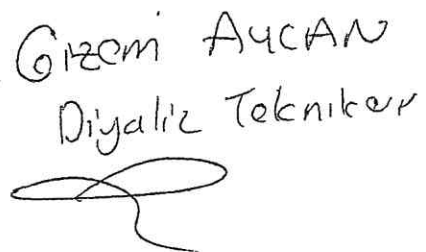 Gizem AYCAN
Diyaliz Teknikeri